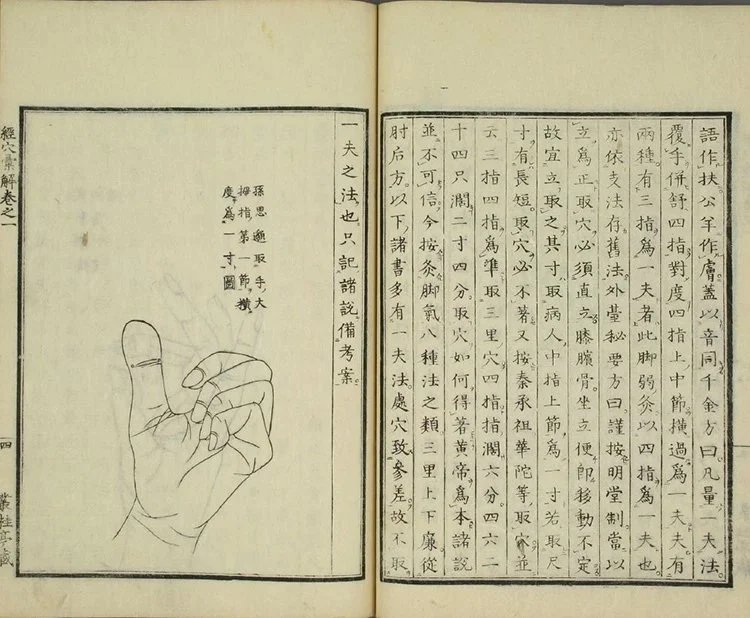 語作扶公羊作膚蓋以音同千金方曰凡量一夫法
覆手併舒四指對度四指上中節橫過爲一夫夫有
兩種有三指爲一夫者此脚弱灸以四指爲一夫也
亦依支法存舊法外臺秘要方曰謹按明堂制當以
立爲正取穴必須直立膝臏骨坐立便卽移動不定
故宜立取之其寸取病人中指上節爲一寸若取尺
寸有長短取穴必不著又按秦承祖華陀等取穴並
云三指四指爲準取三里穴四指指濶六分四六二
十四只濶二寸四分取穴如何得著黃帝爲本諸說
並不可信今按灸脚氣八種法之類三里上下廉從
肘后方以下諸書多有一夫法處穴致參差故不取
一夫之法也只記諸說備考案
孫思邈取手大
拇指第一節橫
度爲一寸圖
經穴彙解卷之一
一四
叢桂亭藏